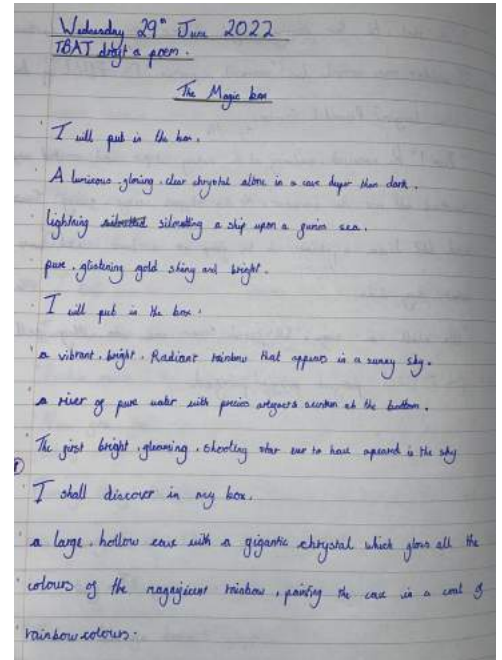 Wednesday 29th June 2022
TBAT draft a poem.
The Magic box
I will put in the box.
A luminous, glowing, clear chrystal alone in a cave deeper than dark.
lightning siloetting a ship upon a furios sea.
pure, glistening gold shiny and bright.
I will put in the box.
a vibrant, bright, Radiant rainbow that appears in a sunny sky.
a river of pure water with precios artefacts sunken at the bottom.
The first bright, gleaming, shooting star eur to have apeared in the sky
I shall discover in my box.
a large, hollow cave with a gigantic chrystal which glows all the
colours of the magnificent rainbow, painting the cave in a coat of
rainbow colours.